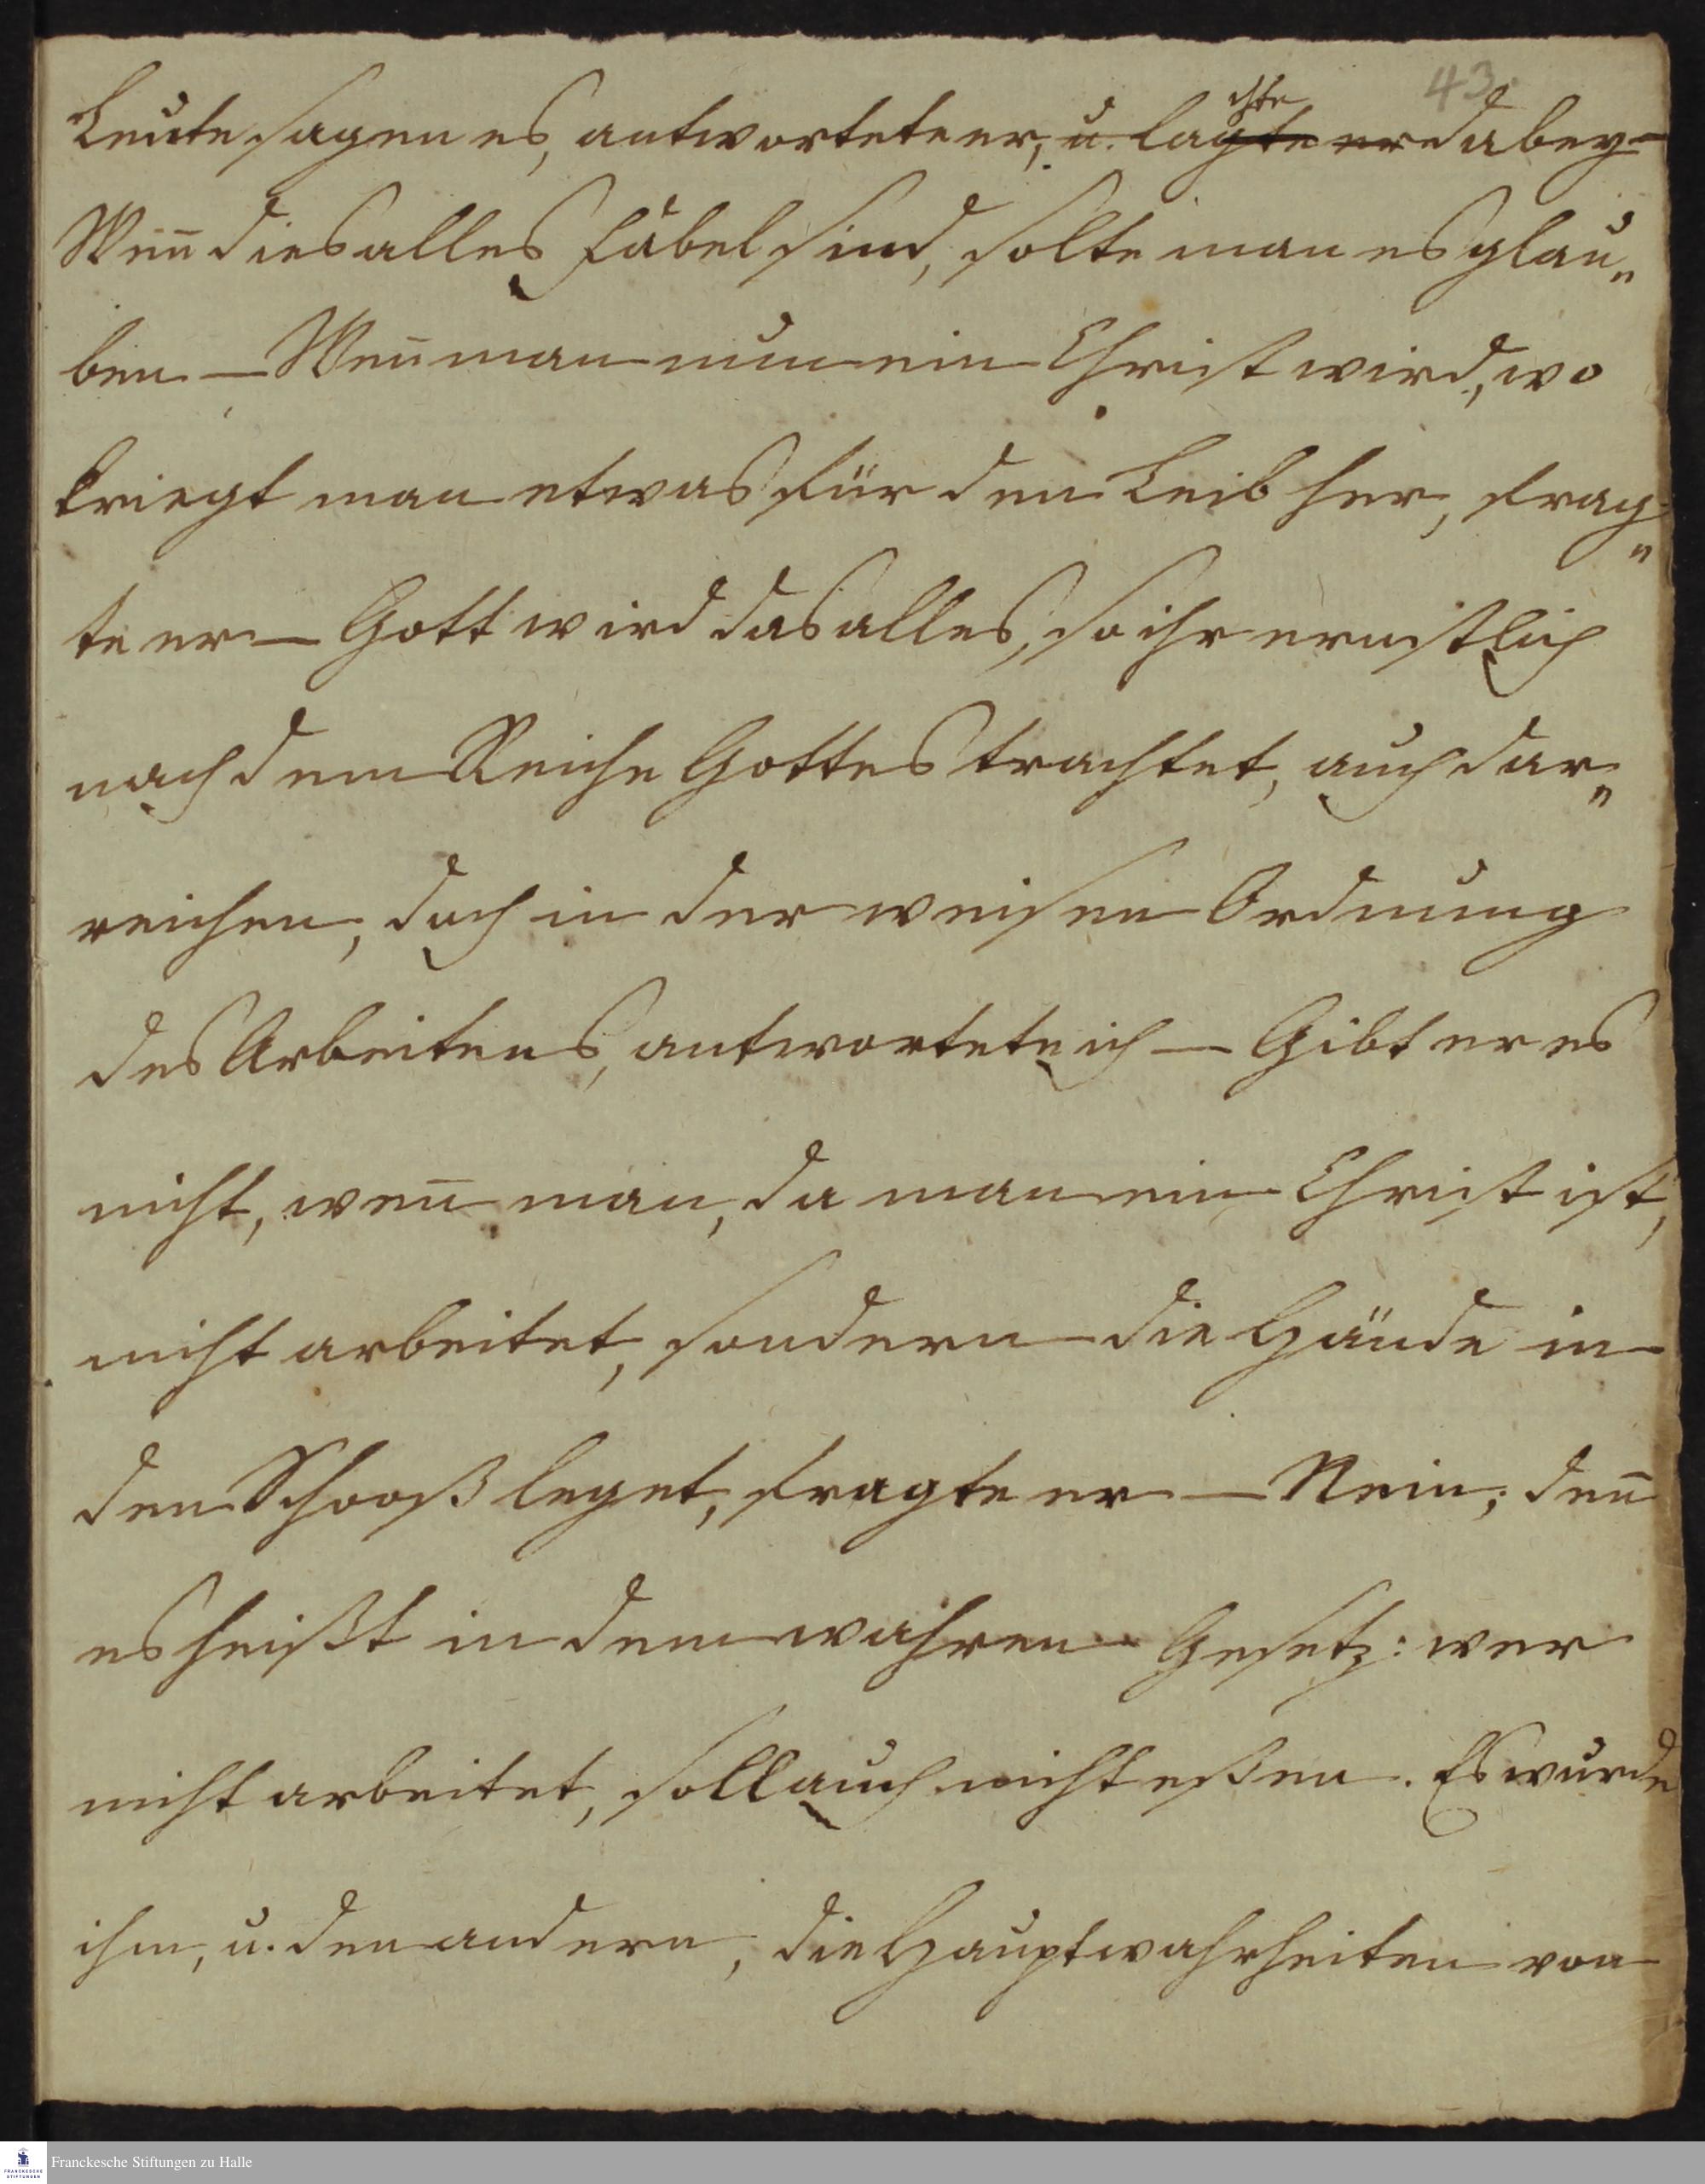 43.
Leute sagen es, antwortete er, u. lachte dabey –
Weñ dies alles Fabel sind, solte man es glau„
ben – Weñ man nun ein Christ wird, wo
kriegt man etwas für den Leib her, frag„
te er – Gott wird das alles, so ihr ernstlich
nach dem Reiche Gottes trachtet, auch dar„
reichen, doch in der weisen Ordnung
des Arbeitens, antwortete ich – Gibt er es
nicht, weñ man, da man ein Christ ist,
nicht arbeitet, sondern die Hände in
den Schooß leget, fragte er – Nein, deñ
es heißt in dem wahren Gesetz: wer
nicht arbeitet, soll auch nicht eßen. Es wurde
ihm, u. den andern, die Hauptwahrheiten von
Franckesche Stiftungen zu Halle